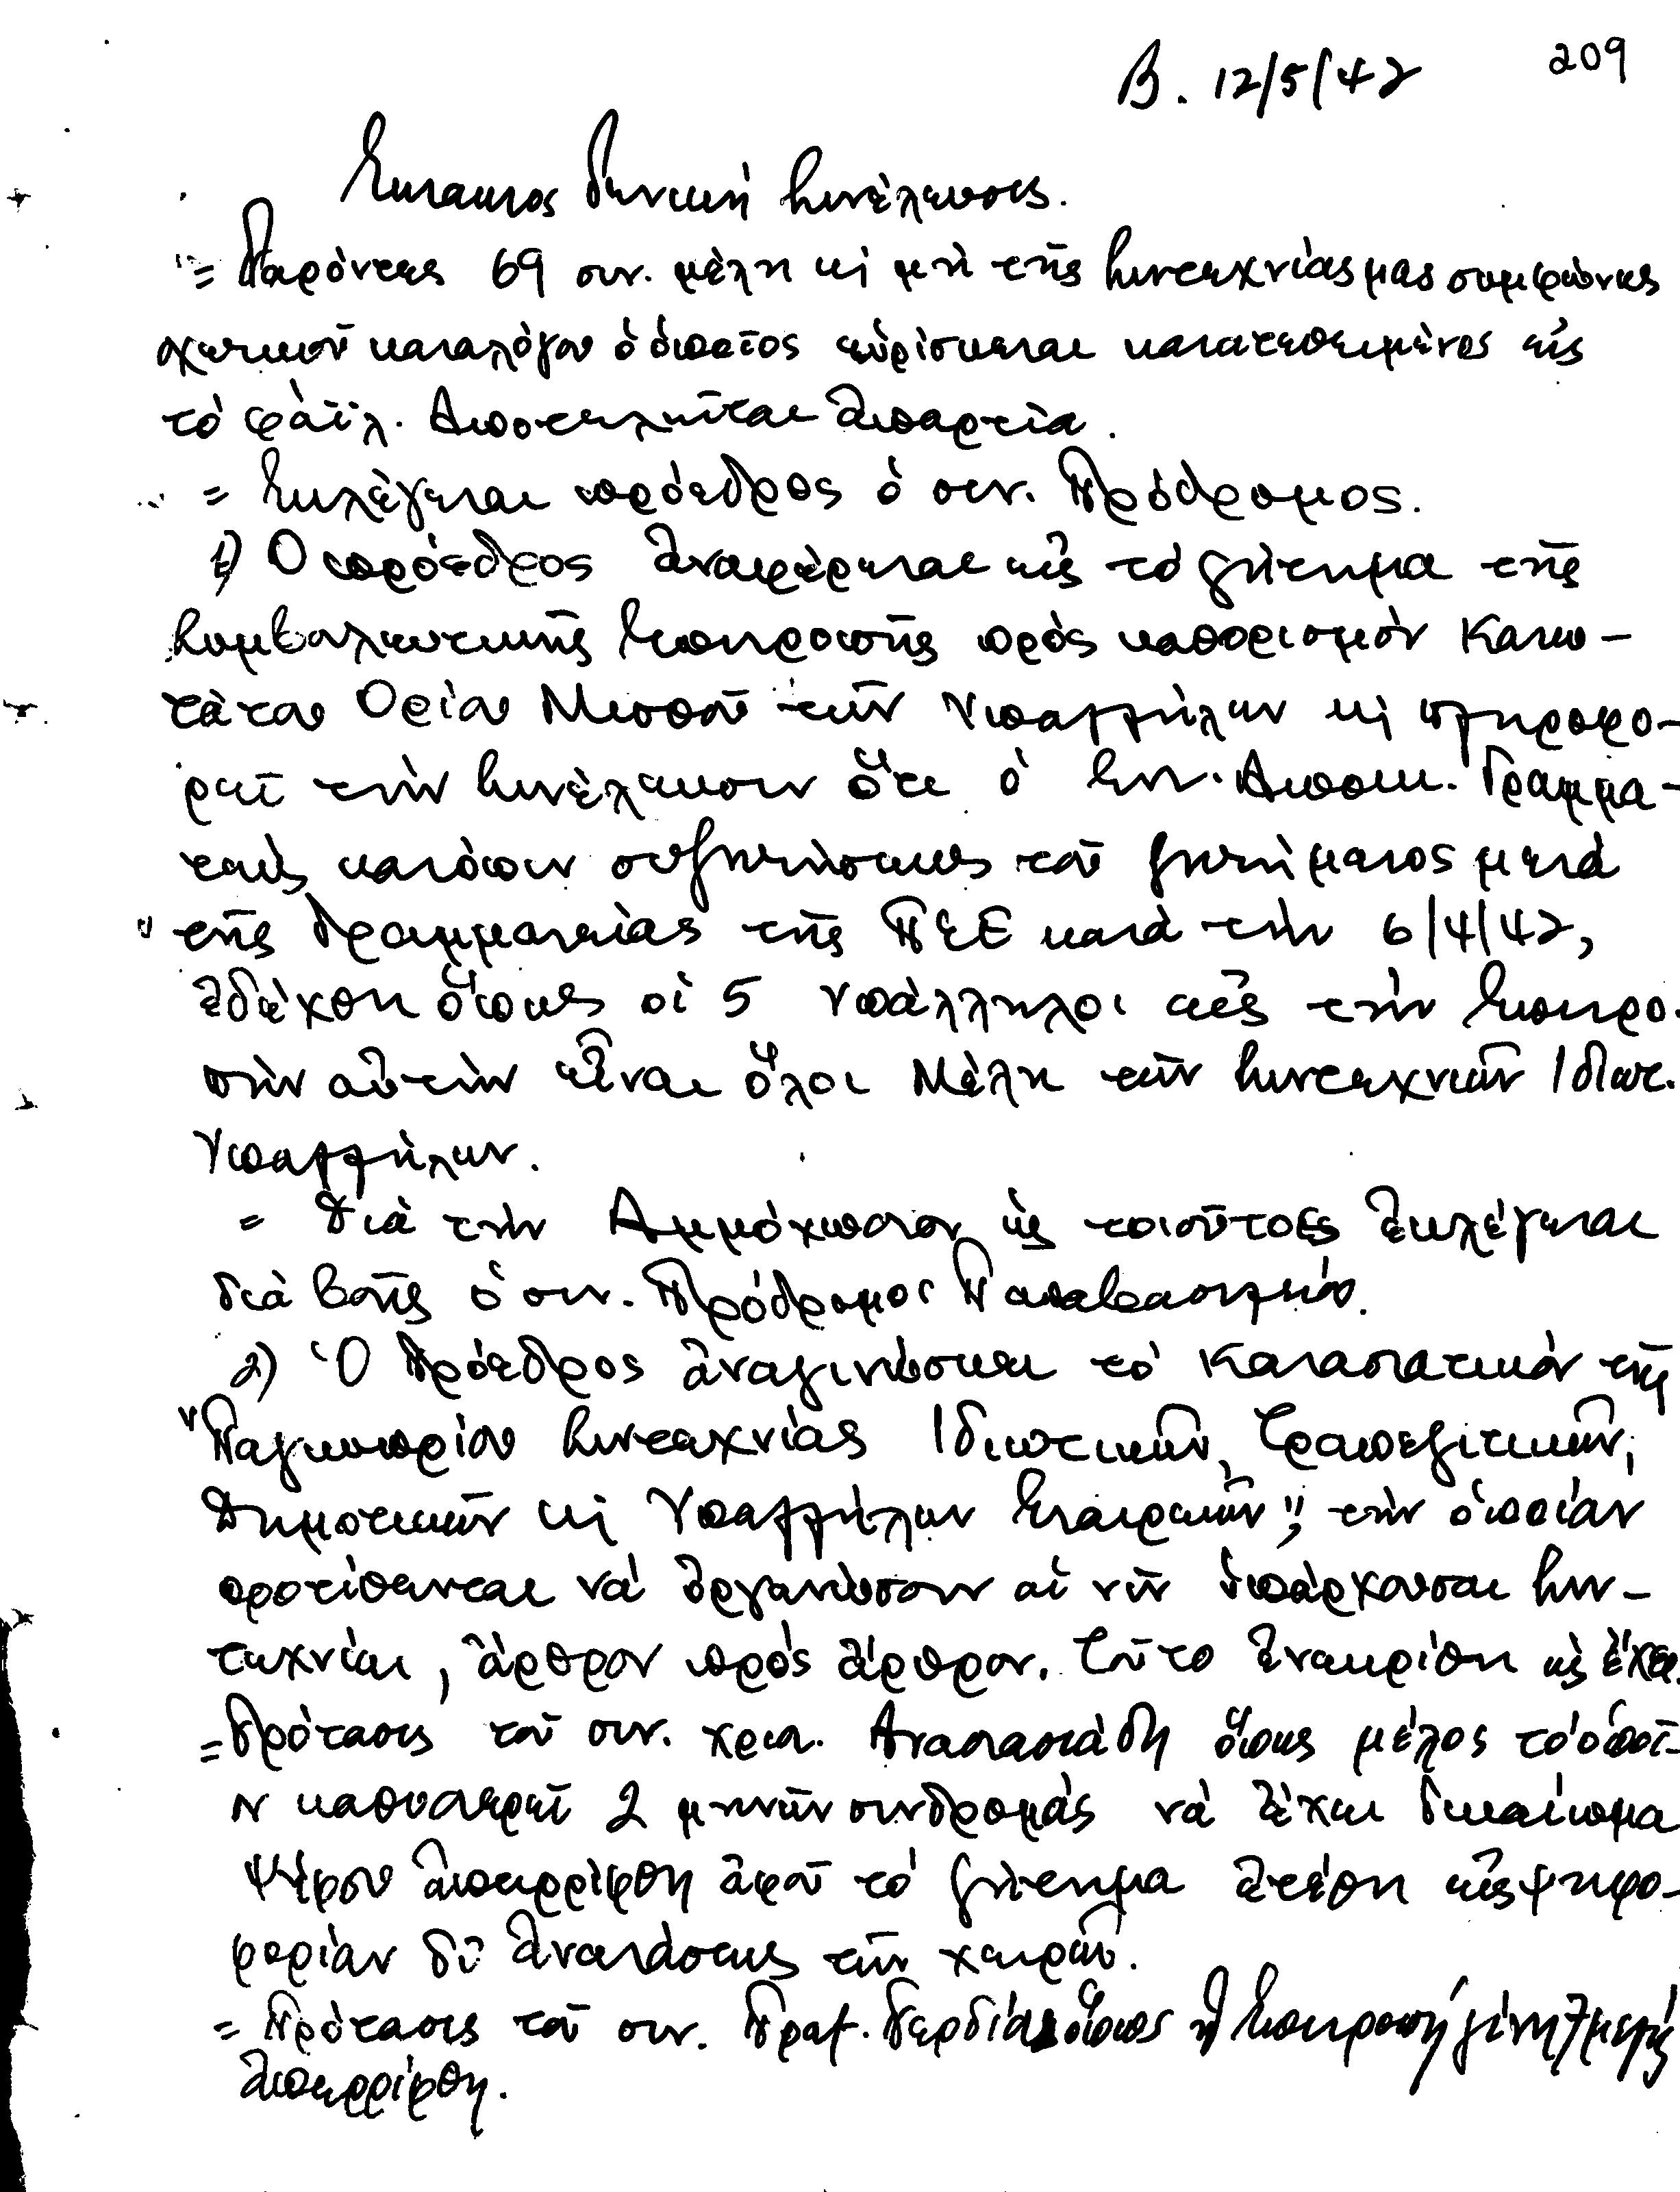 209
Β. 12/5/42
Έκτακτος Γενική Συνέλευσις.
= Παρόντες 69 συν. μέλη κ) μή τῆς Συντεχνίας μας συμφώνως
σχετικοῦ καταλόγου ὁ ὁποῖος εὑρίσκεται κατατεθειμένος εἰς
τό φάϊλ. Αποτελεῖται ἀπαρτία.
= Εκλέγεται πρόεδρος ὁ συν. Πρόδρομος.
1) Ο πρόεδρος ἀναφέρεται εἰς τό ζήτημα τῆς
Συμβουλευτικῆς Επιτροπῆς πρός καθορισμόν Κατω-
τάτου Ορίου Μισθοῦ τῶν Υπαλλήλων κ) πληροφο-
ρεῖ τήν Συνέλευσιν ὅτι ὁ Αποικ. Γραμμα-
τεύς κατόπιν συζητήσεως τοῦ ζητήματος μετά
τῆς Γραμματείας τῆς ΠΣΕ κατά τήν 6/4/42,
ἐδέχθη ὅπως οἱ 5 Υπάλληλοι εἰς τήν Επιτρο-
πήν αὐτήν εἶναι ὅλοι Μέλη τῶν Συντεχνιῶν Ιδιωτ.
Υπαλλήλων.
= Διά τήν Αμμόχωστον ὡς τοιοῦτος ἐκλέγεται
διά βοῆς ὁ συν. Πρόδρομος Παπαβασιλείου.
2) Ὁ Πρόεδρος ἀναγινώσκει τό Καταστατικόν τῆς
"Παγκυπρίου Συντεχνίας Ιδιωτικῶν, Τραπεζιτικῶν,
Δημοτικῶν κ) Υπαλλήλων Εταιρειῶν", τήν ὁποίαν
προτίθενται νά ὀργανώσουν αἱ νῦν ὑπάρχουσαι Συν-
τεχνίαι, ἄρθρον πρός ἄρθρον. Τοῦτο ἐνεκρίθη ὡς ἔχει.
= Πρότασις τοῦ συν. Χριστ. Αναστασιάδη ὅπως μέλος τό ὁποῖ-
ον καθυστερεῖ 2 μηνῶν συνδρομάς νά ἔχει δικαίωμα
ψήφου ἀπερρίφθη ἀφοῦ τό ζήτημα ἐτέθη εἰς ψηφο-
φορίαν δι' ἀνατάσεως τῶν χειρῶν.
= Πρότασις τοῦ συν. ὅπως ἡ Επιτροπή γίνῃ 7μελής
ἀπερρίφθη.